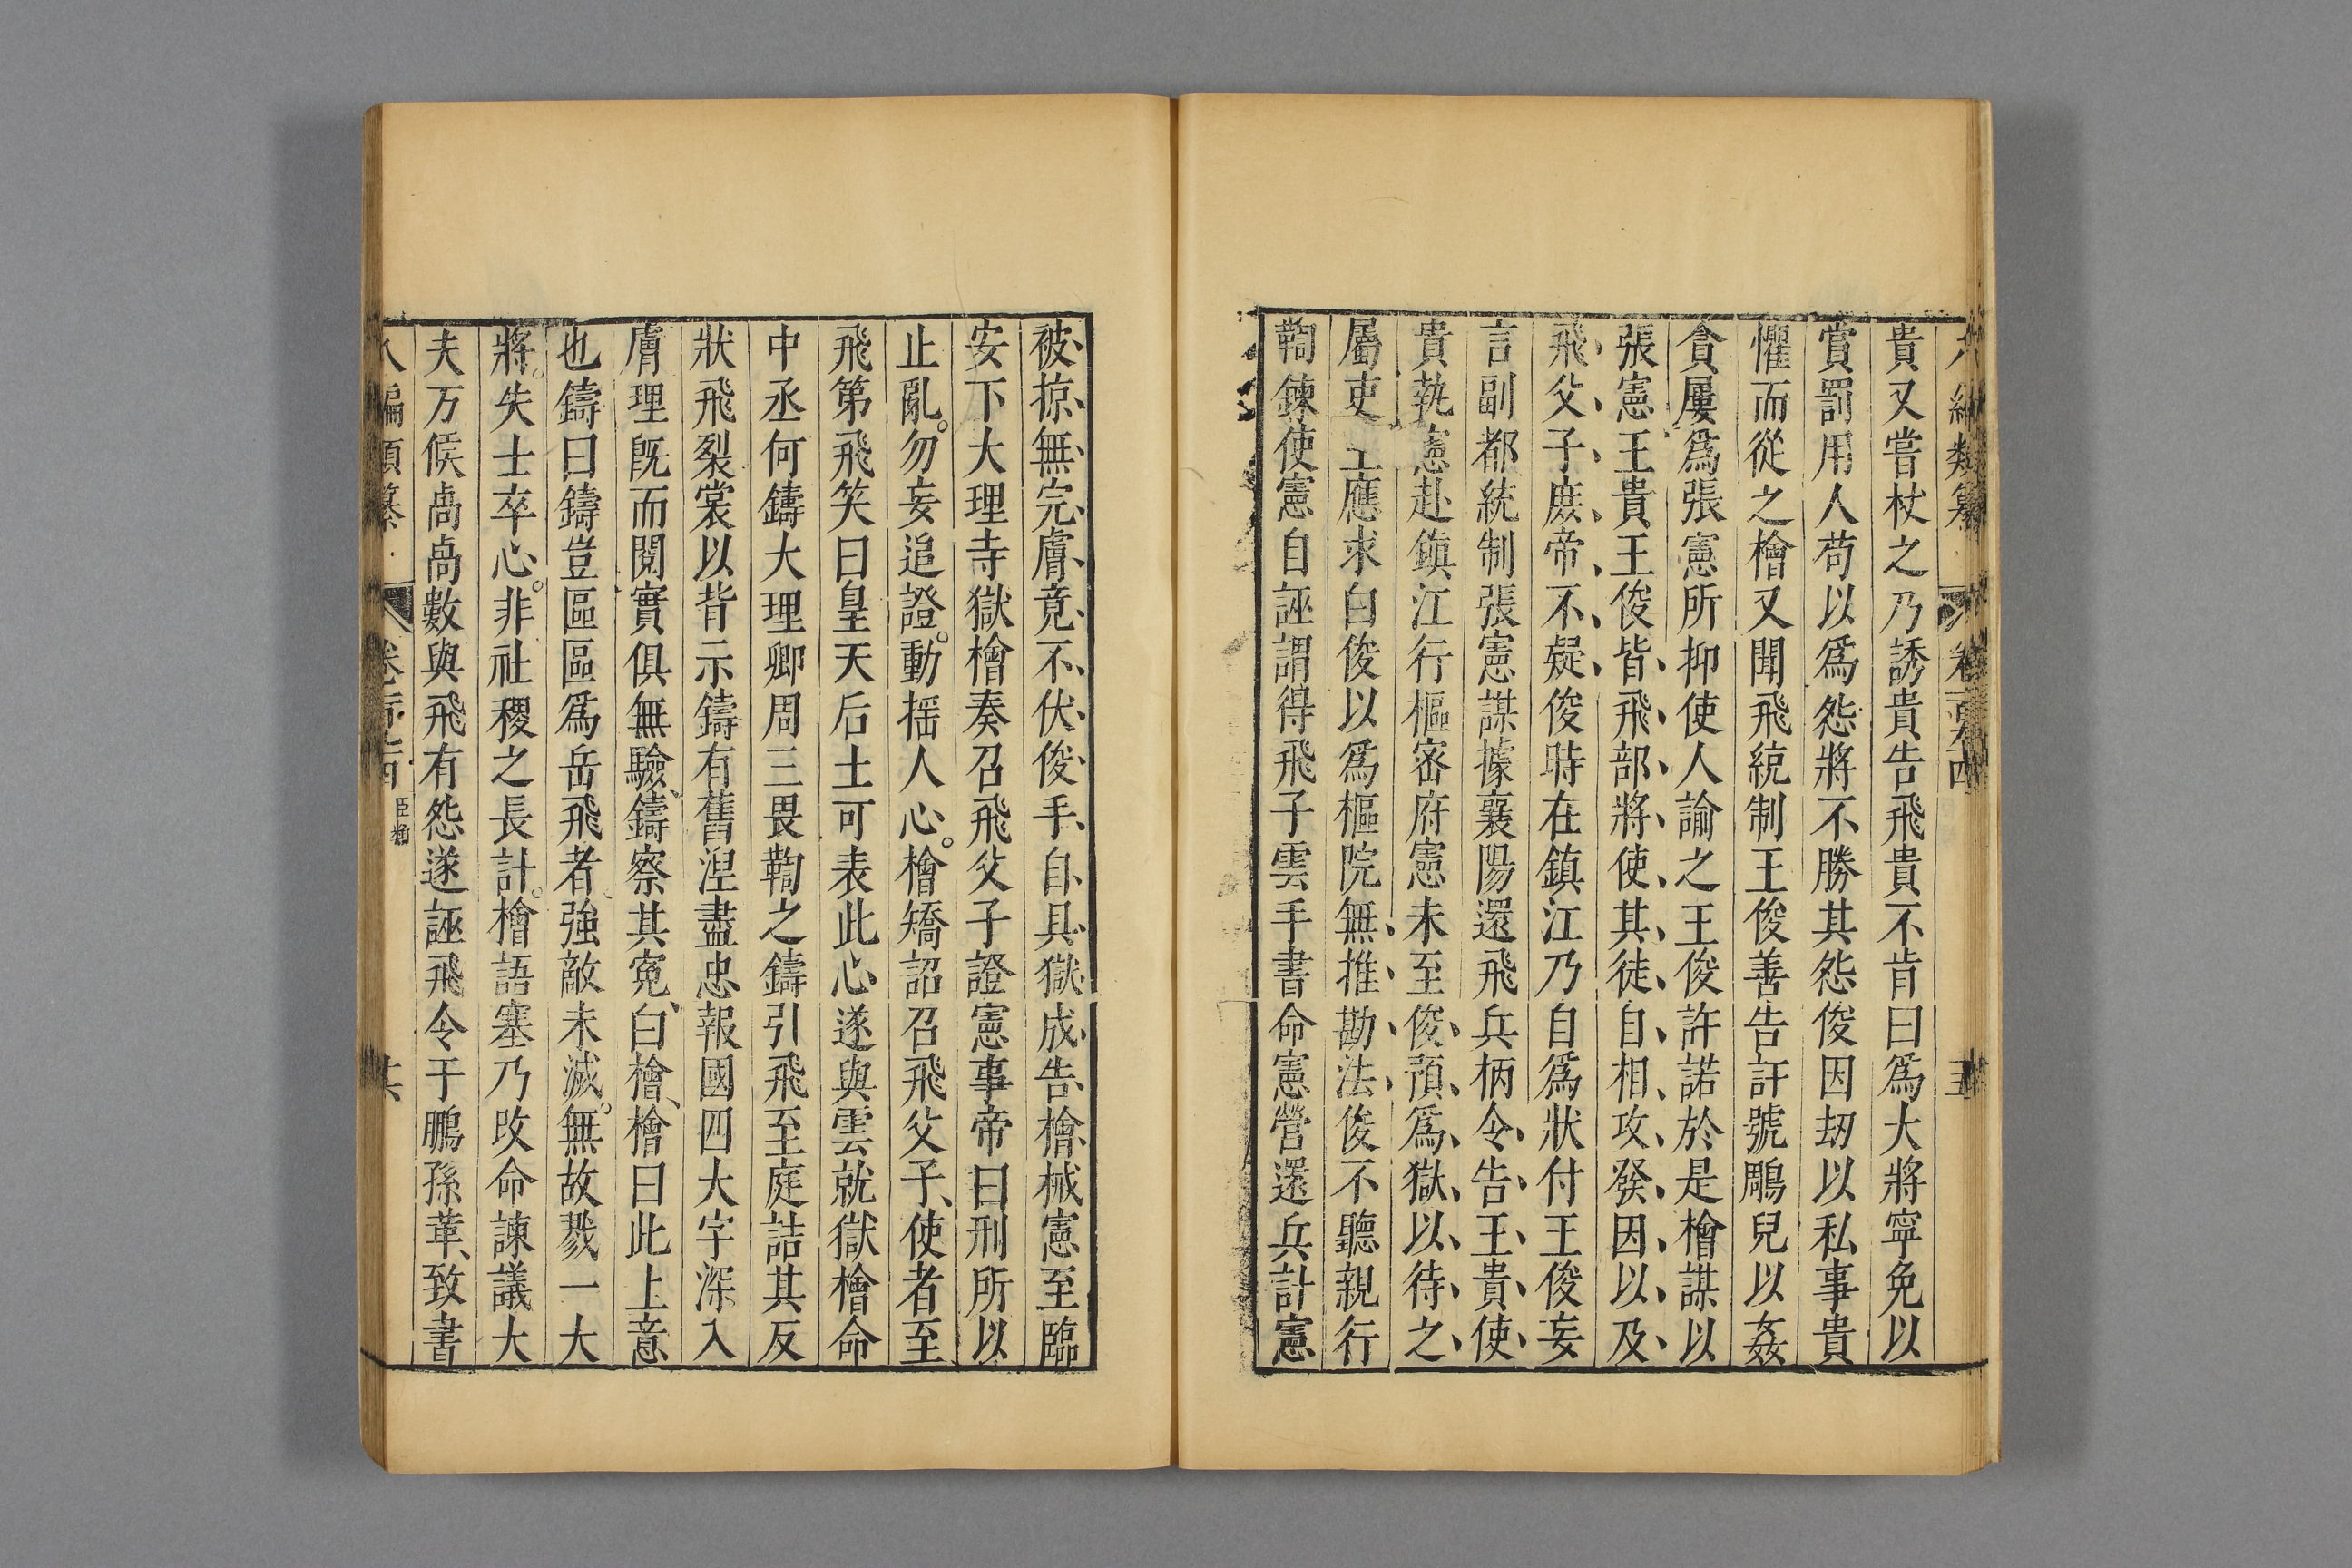 貴又嘗杖之乃誘貴告飛貴不肯曰爲大將寧免以
賞罰用人苟以爲怨將不勝其怨俊因刼以私事貴
懼而從之檜又聞飛統制王俊善告訐號鵰兒以姦
貪屢爲張憲所抑使人諭之王俊許諾於是檜謀以
張憲王貴王俊皆飛部將使其徒自相攻發因以及
飛父子庻帝不疑俊時在鎮江乃自爲狀付王俊妄
言副都統制張憲謀據襄陽還飛兵柄令告王貴使
貴執憲赴鎮江行樞密府憲未至俊預爲獄以待之
屬吏王應求白俊以爲樞院無推勘法俊不聽親行
鞫鍊使憲自誣謂得飛子雲手書命憲營還兵計憲
被掠無完膚竟不伏俊手自具獄成告檜械憲至臨
安下大理寺獄檜奏召飛父子證憲事帝曰刑所以
止亂。勿妄追證。動揺人心。檜矯詔召飛父子、使者至
飛第飛笑曰皇天后土可表此心遂與雲就獄檜命
中丞何鑄大理卿周三畏鞫之鑄引飛至庭詰其反
狀飛裂裳以背示鑄有舊涅盡忠報國四大字深入
膚理既而閱實俱無驗、鑄察其寃、白檜、檜曰此上意
也鑄曰鑄豈區區爲岳飛者、強敵未滅。無故戮一大
將。失士卒心。非社稷之長計。檜語塞乃改命諫議大
夫万俟卨卨數與飛有怨遂誣飛令于鵬孫革、致書
八編類纂 卷 臣 共